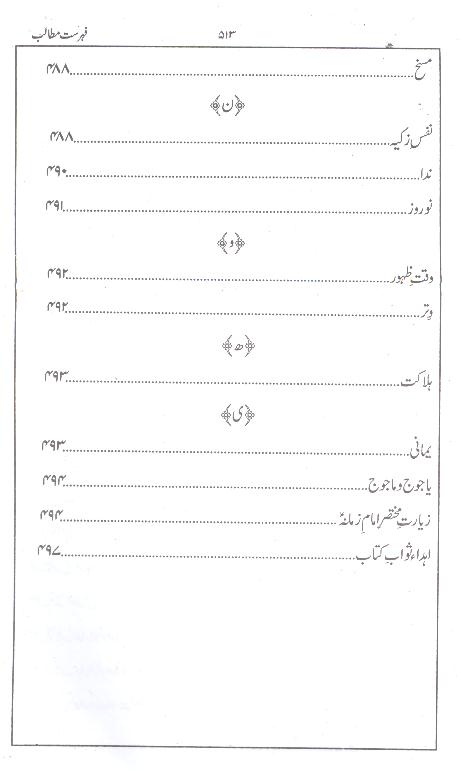 فہرست مطالب ۵۱۳
مسخ ........ ۴۸۸
﴿ن﴾
نفسِ زکیہ ........ ۴۸۸
ندا ........ ۴۹۰
نوروز ........ ۴۹۱
﴿و﴾
وقتِ ظہور ........ ۴۹۲
وتر ........ ۴۹۲
﴿ھ﴾
ہلاکت ........ ۴۹۳
﴿ی﴾
یمانی ........ ۴۹۳
یاجوج وماجوج ........ ۴۹۴
زیارتِ مختصر امامِ زمانہؑ ........ ۴۹۴
اھداء ثوابِ کتاب ........ ۴۹۷